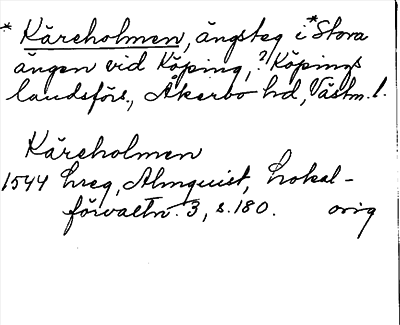 * Kåreholmen, ängsteg i *Stora
ängen vid Köping, ?Köpings
landsförs., Åkerbo hd, Västm. l.
Kåreholmen
1544 hreg, Almquist, Lokal-
förvaltn. 3, s. 180. orig